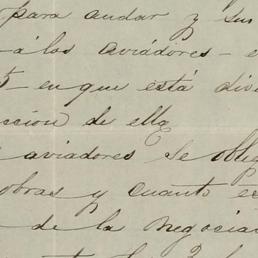 para andar y sus
á los aviadores - e
en que está divi
cción de ella
aviadores se oblig
obras y cuanto es
de la negocia